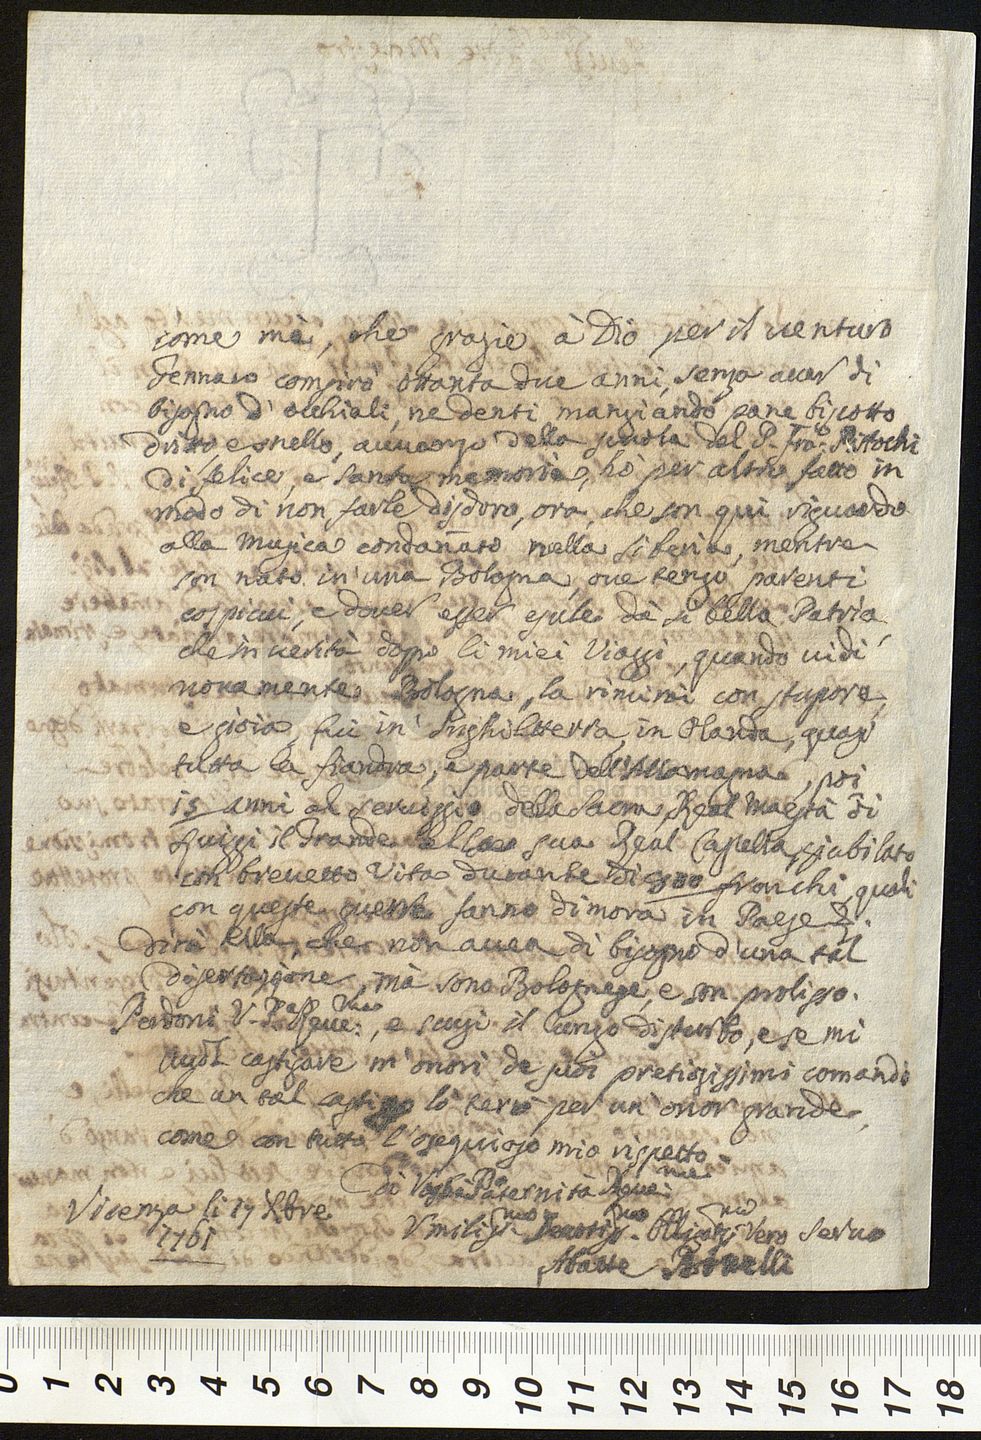 come mè, che grazie à Dio per il venturo
Gennaro compirò ottanta due anni, senza aver di
bisogno d'occhiali, ne denti mangiando pane biscotto
dritto, e snello, avvanzo della scuola del P. Fra Pistochi
di felice, e santa memoria, hò per altro fatto in
modo di non farle disdoro, ora, che son qui riguardo
alla Musica condañato nella Siberia, mentre
son nato in una Bologna, ove tengo parenti
cospicui, e dover esser esule dà sì bella Patria,
che in verità dopo li miei Viaggi, quando vidi
novamente Bologna, la rimirai con stupore,
e gioia, fui in Inghilterra, in Olanda, quasi
tutta la fiandra, e parte dell'Allamagna, poi
15 anni al servizio della Sacra Real Maestà di
Luigi il Grande nella sua Real Capella, giubilato
con brevetto Vita durante di franchi, quali
con queste guerre fanno dimora in Paese
Dirà ella, che non avea di bisogno d'una tal
disertazione, mà sono Bolognese, e son prolisso.
Perdoni V. P. Reve:, e scusi il lungo disturbo, e se mi
vuol castigare m'onori de suoi pretiosissimi comandi
che un tal castigo lo terrò per un'onor grande,
come con tutto l'osequioso mio rispetto
Di Vostra Paternità Reve:
Vicenza li 17 Xbre
1761
Umiliss Devotiss Obligatiss Vero Servo
Abatte